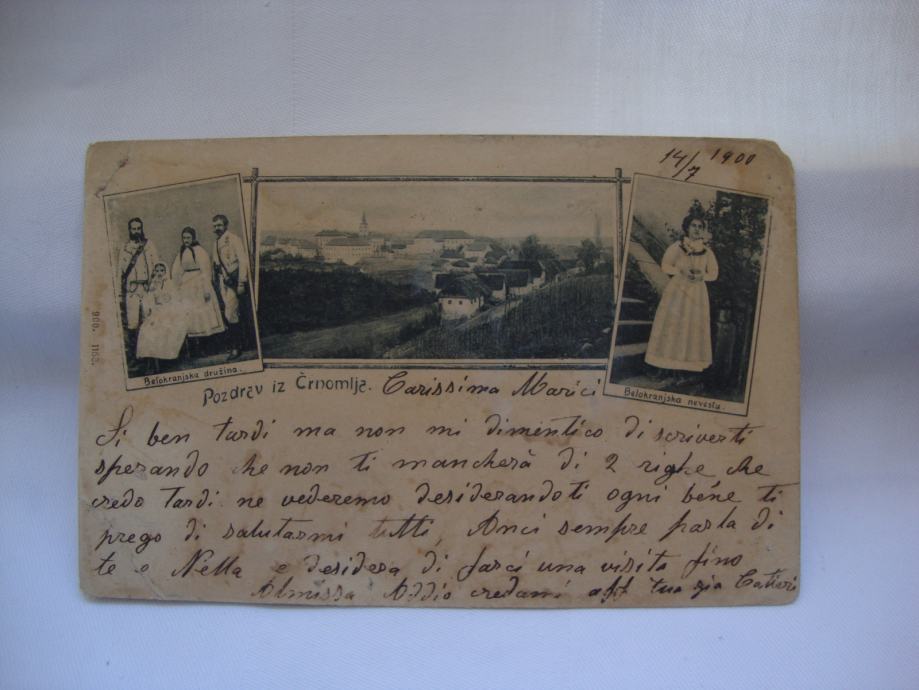 14/7 1900
900. 1163.
Belokranjska družina.
Pozdrav iz Črnomlja.
Belokranjska nevesta.
Carissima Marici
Si ben tardi ma non mi dimentico di scriverti
sperando che non ti mancherà di 2 righe che
credo tardi ne vederemo desiderandoti ogni béne ti
prego di salutarmi tutti, Anci sempre parla di
te e Nella e desidera di farci una visita fino
Almissa Addio credami aff tua zia